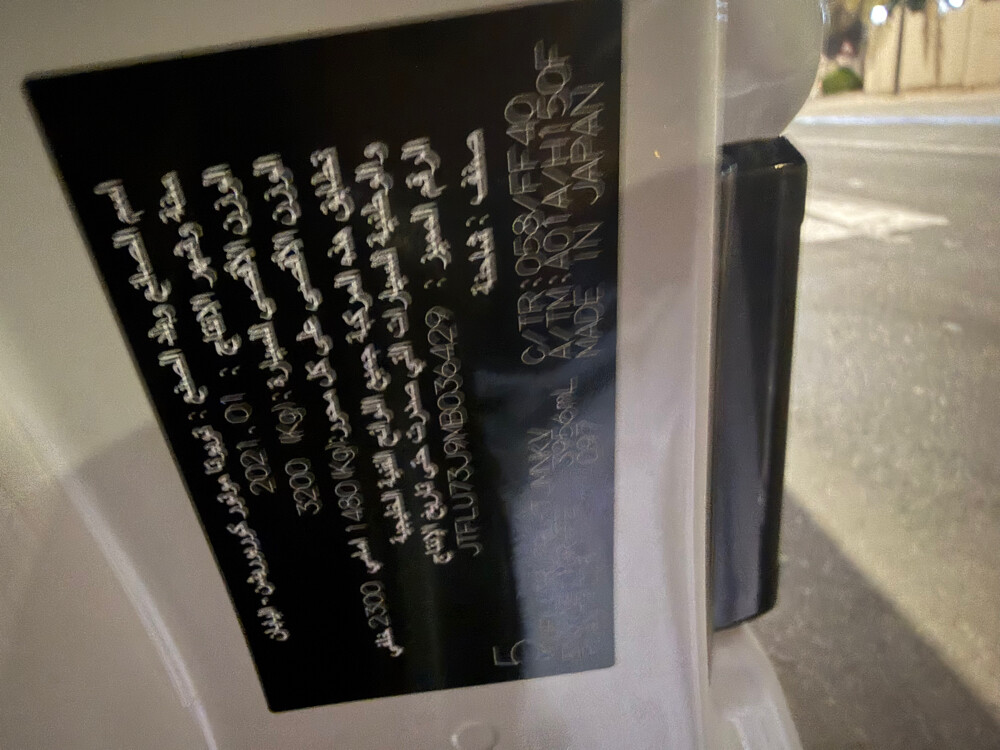 اسم الصانع وبلد الصنع : تويوتا موتور كوربوريشن - اليابان
سنة وشهر الإنتاج : 2021.01
الوزن الأقصى للسيارة : 3200 (Kg)
الوزن الأقصى على كل محور:(Kg) 1480 أمامي 2300 خلفي
تطابق هذه المركبة جميع اللوائح الفنية الخليجية
والوطنية للسيارات التي صدرت حتى تاريخ الإنتاج
الرقم المميز : JTFLU73J9MB036429
صنف : شاحنة
5
C/TR:058/FF40
A/TM:A01A/H150F
MADE IN JAPAN
JMNKV
3956mL